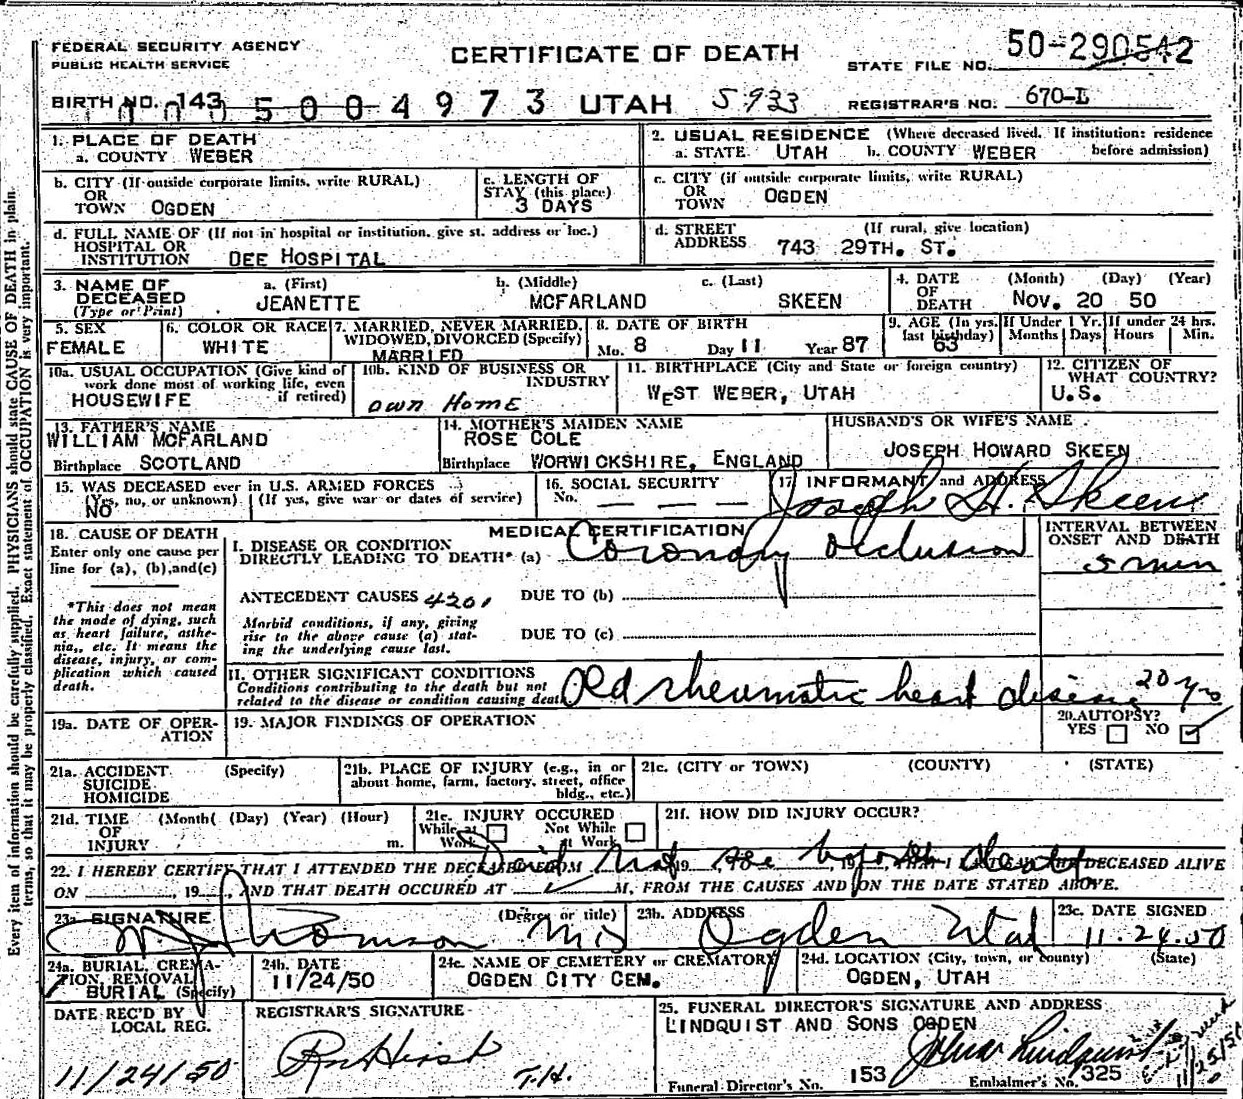 FEDERAL SECURITY AGENCY
PUBLIC HEALTH SERVICE
CERTIFICATE OF DEATH
STATE FILE NO. 50-290542
BIRTH NO. 143 5004973 UTAH 5933
REGISTRAR'S NO. 670-L
1. PLACE OF DEATH
a. COUNTY WEBER
2. USUAL RESIDENCE (Where deceased lived. If institution: residence before admission)
a. STATE UTAH b. COUNTY WEBER
b. CITY (If outside corporate limits, write RURAL)
OR
TOWN OGDEN
c. LENGTH OF
STAY (this place)
3 DAYS
c. CITY (if outside corporate limits, write RURAL)
OR
TOWN OGDEN
d. FULL NAME OF (If not in hospital or institution, give st. address or loc.)
HOSPITAL OR
INSTITUTION DEE HOSPITAL
d. STREET (If rural, give location)
ADDRESS 743 29TH. ST.
3. NAME OF DECEASED (Type or Print)
a. (First) b. (Middle) c. (Last)
JEANETTE MCFARLAND SKEEN
4. DATE OF DEATH (Month) (Day) (Year)
NOV. 20 50
5. SEX
FEMALE
6. COLOR OR RACE
WHITE
7. MARRIED, NEVER MARRIED,
WIDOWED, DIVORCED (Specify)
MARRIED
8. DATE OF BIRTH
Mo. 8 Day 11 Year 87
9. AGE (In yrs. last birthday)
63
If Under 1 Yr.
Months Days
If under 24 hrs.
Hours Min.
10a. USUAL OCCUPATION (Give kind of
work done most of working life, even
if retired)
HOUSEWIFE
10b. KIND OF BUSINESS OR
INDUSTRY
OWN HOME
11. BIRTHPLACE (City and State or foreign country)
WEST WEBER, UTAH
12. CITIZEN OF
WHAT COUNTRY?
U.S.
13. FATHER'S NAME
WILLIAM MCFARLAND
Birthplace SCOTLAND
14. MOTHER'S MAIDEN NAME
ROSE COLE
Birthplace WORWICKSHIRE, ENGLAND
HUSBAND'S OR WIFE'S NAME
JOSEPH HOWARD SKEEN
15. WAS DECEASED ever in U.S. ARMED FORCES
(Yes, no, or unknown) (If yes, give war or dates of service)
NO
16. SOCIAL SECURITY
No. — — —
17 INFORMANT and ADDRESS
Joseph H. Skeen
18. CAUSE OF DEATH
Enter only one cause per
line for (a), (b), and (c)
*This does not mean
the mode of dying, such
as heart failure, asthe-
nia, etc. It means the
disease, injury, or com-
plication which caused
death.
MEDICAL CERTIFICATION
I. DISEASE OR CONDITION
DIRECTLY LEADING TO DEATH* (a) Coronary occlusion
INTERVAL BETWEEN
ONSET AND DEATH
5 min
ANTECEDENT CAUSES 4201 DUE TO (b)
Morbid conditions, if any, giving
rise to the above cause (a) stat-
ing the underlying cause last.
DUE TO (c)
II. OTHER SIGNIFICANT CONDITIONS
Conditions contributing to the death but not
related to the disease or condition causing death
Old rheumatic heart disease 20 yrs
19a. DATE OF OPER-
ATION
19. MAJOR FINDINGS OF OPERATION
20. AUTOPSY?
YES NO
21a. ACCIDENT (Specify)
SUICIDE
HOMICIDE
21b. PLACE OF INJURY (e.g., in or
about home, farm, factory, street, office
bldg., etc.)
21c. (CITY or TOWN) (COUNTY) (STATE)
21d. TIME (Month) (Day) (Year) (Hour)
OF
INJURY m.
21e. INJURY OCCURED
While at Work Not While at Work
21f. HOW DID INJURY OCCUR?
22. I HEREBY CERTIFY THAT I ATTENDED THE DECEASED FROM 19 19 DECEASED ALIVE
Did Not see before death
ON 19 , AND THAT DEATH OCCURED AT M., FROM THE CAUSES AND ON THE DATE STATED ABOVE.
23a SIGNATURE (Degree or title)
Thomson MD
23b. ADDRESS
Ogden Utah
23c. DATE SIGNED
11.24.50
24a. BURIAL, CREMA-
TION, REMOVAL
(Specify)
BURIAL
24b. DATE
11/24/50
24c. NAME OF CEMETERY or CREMATORY
OGDEN CITY CEM.
24d. LOCATION (City, town, or county) (State)
OGDEN, UTAH
DATE REC'D BY
LOCAL REG.
11/24/50
REGISTRAR'S SIGNATURE
T.H.
25. FUNERAL DIRECTOR'S SIGNATURE AND ADDRESS
LINDQUIST AND SONS OGDEN
Funeral Director's No. 153 Embalmer's No. 325
Every item of information should be carefully supplied. PHYSICIANS should state CAUSE OF DEATH in plain
terms, so that it may be properly classified. Exact statement of OCCUPATION is very important.